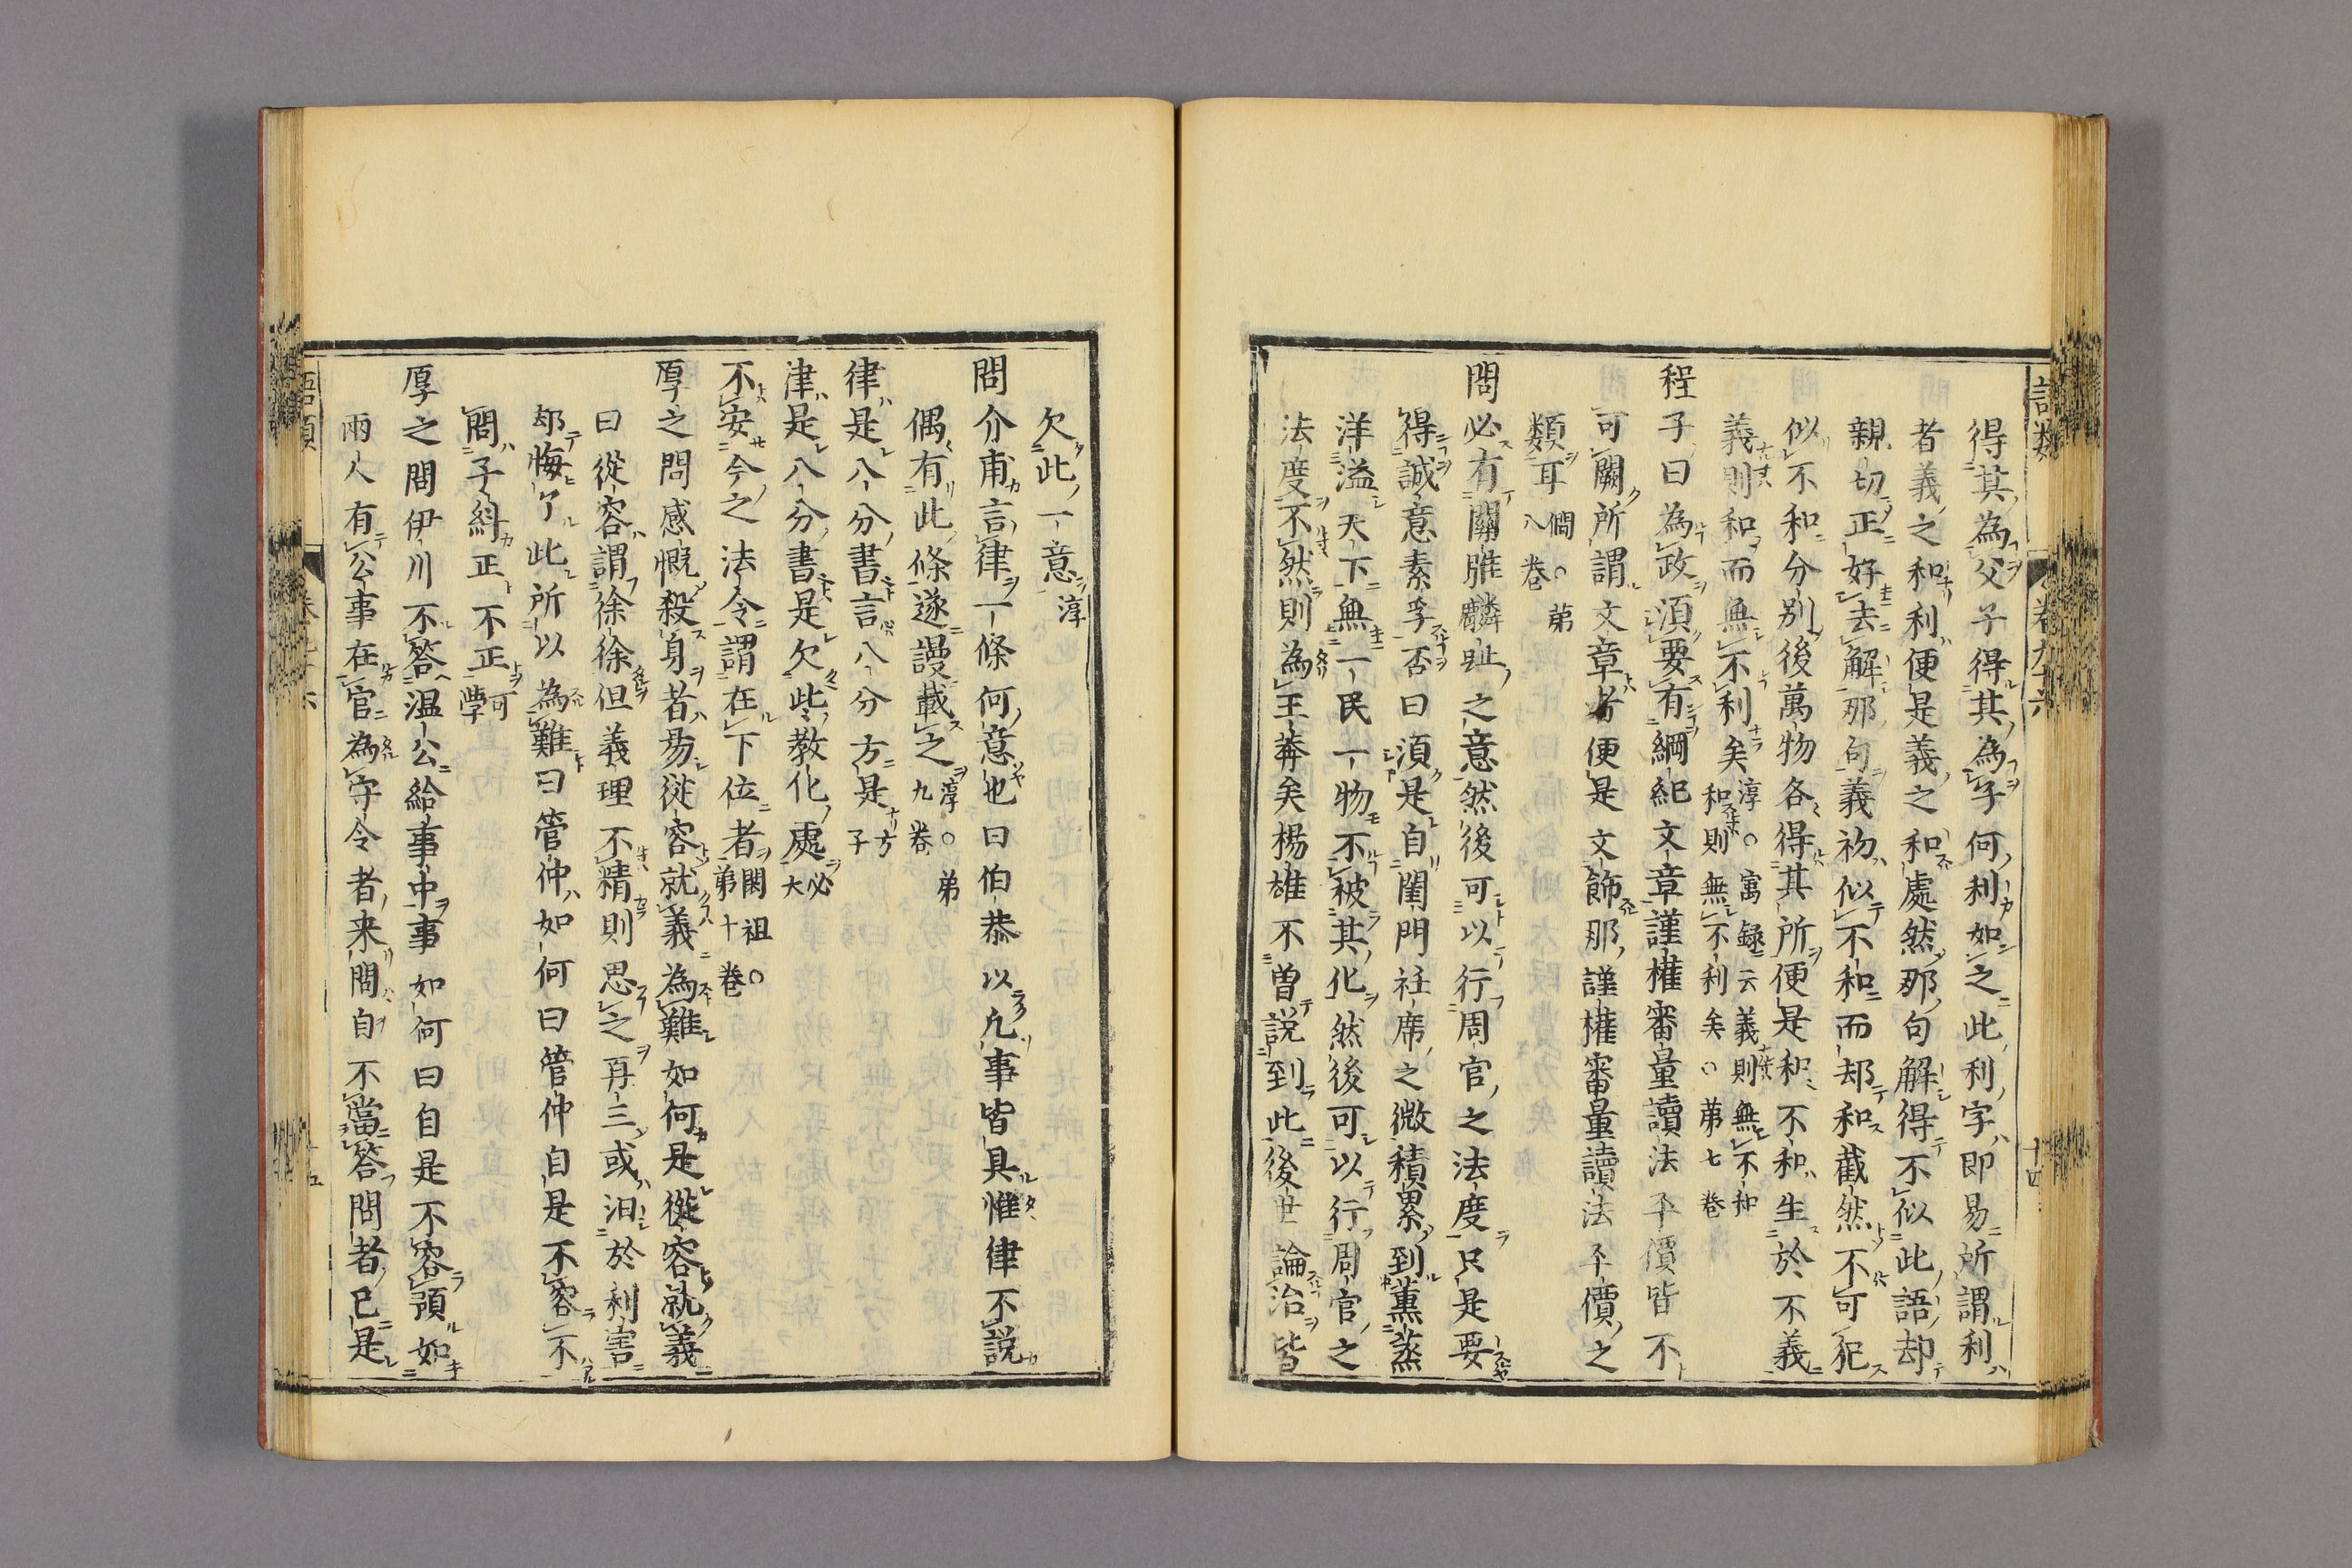 語類 卷九十六 十四
得其為父子得其為子何利如之此利字即易所謂利
者義之和利便是義之和處然那句解得不似此語却
親切正好去解那句義初似不和而却和截然不可犯
似不和分別後萬物各得其所便是和不和生於不義
義則和而無不利矣淳○寓錄云義則無不和和則無不利矣○第七卷
程子曰為政須要有綱紀文章謹權審量讀法平價皆不
可闕所謂文章者便是文飾那謹權審量讀法平價之
類耳僩○第八卷
問必有關雎麟趾之意然後可以行周官之法度只是要
得誠意素孚否曰須是自閨門衽席之微積累到薰蒸
洋溢天下無一民一物不被其化然後可以行周官之
法度不然則為王莽矣楊雄不曾說到此後世論治皆
欠此一意淳
問介甫言律一條何意也曰伯恭以凡事皆具惟律不說
偶有此條遂謾載之淳○第九卷
律是八分書言八分方是方子
律是八分書是欠些教化處必大
不安今之法令謂在下位者閎祖○第十卷
厚之問感慨殺身者易從容就義為難如何是從容就義
曰從容謂徐徐但義理不精則思之再三或汩於利害
却悔了此所以為難曰管仲如何曰管仲自是不容不
問子糾正不正可學
厚之問伊川不答溫公給事中事如何曰自是不容預如
兩人有公事在官為守令者來問自不當答問者已是
語類 卷九十六 十五